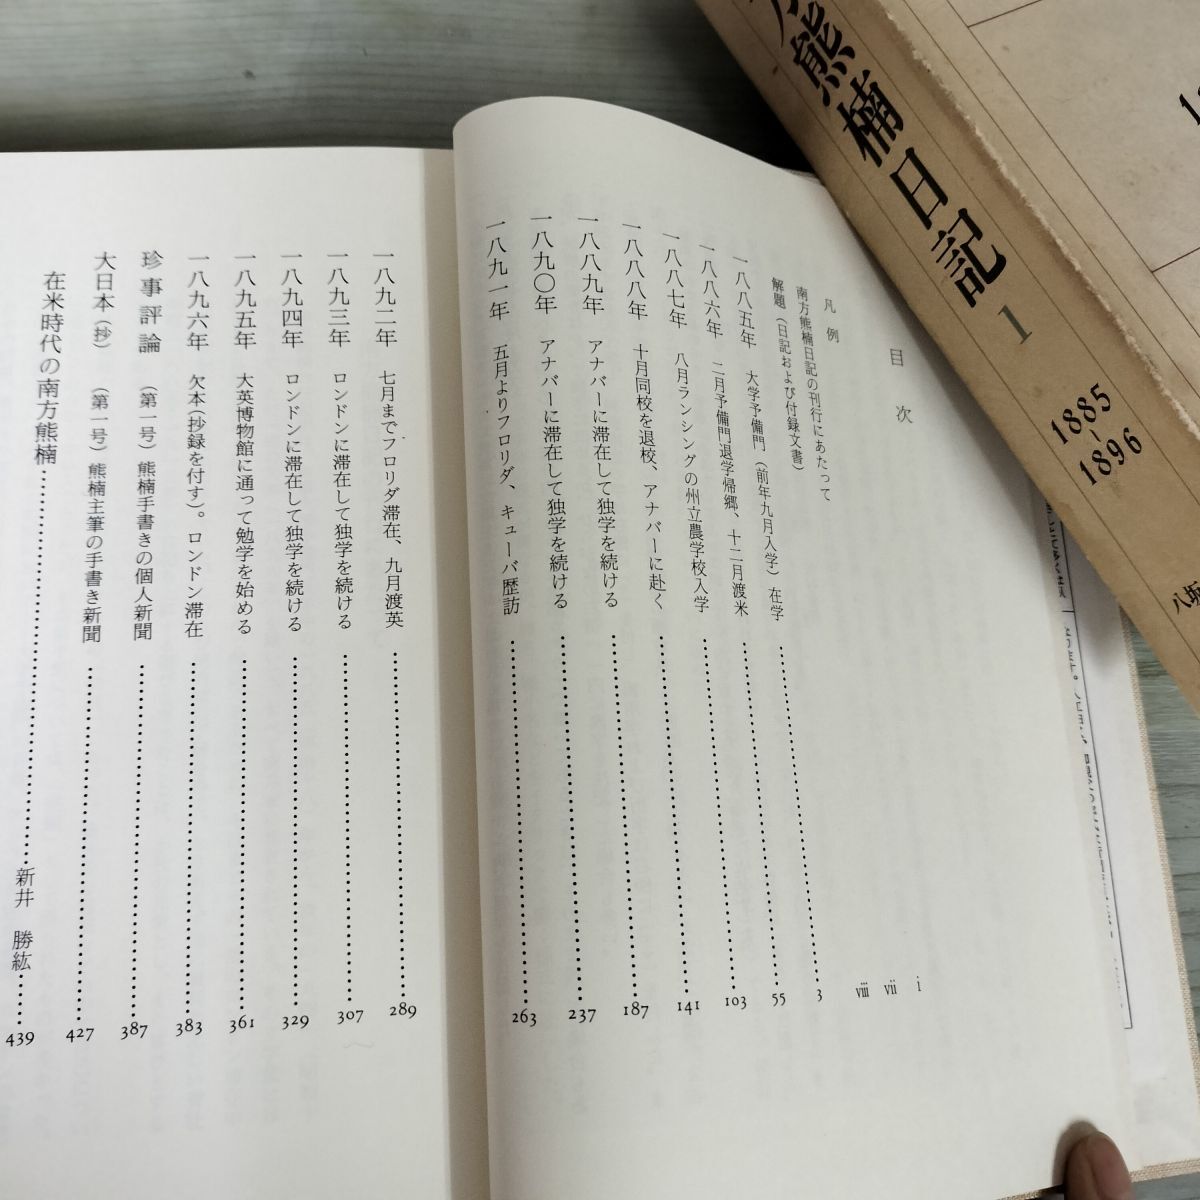 目次
凡例 i
南方熊楠日記の刊行にあたって vii
解題（日記および付録文書） viii
一八八五年 大学予備門（前年九月入学）在学 3
一八八六年 二月予備門退学帰郷、十二月渡米 55
一八八七年 八月ランシングの州立農学校入学 103
一八八八年 十月同校を退校、アナバーに赴く 141
一八八九年 アナバーに滞在して独学を続ける 187
一八九〇年 アナバーに滞在して独学を続ける 237
一八九一年 五月よりフロリダ、キューバ歴訪 263
一八九二年 七月までフロリダ滞在、九月渡英 289
一八九三年 ロンドンに滞在して独学を続ける 307
一八九四年 ロンドンに滞在して独学を続ける 329
一八九五年 大英博物館に通って勉学を始める 361
一八九六年 欠本（抄録を付す）。ロンドン滞在 383
珍事評論 （第一号）熊楠手書きの個人新聞 387
大日本（抄） （第一号）熊楠主筆の手書き新聞 427
在米時代の南方熊楠 新井 勝紘 439
熊楠日記 1
1885-1896
八坂